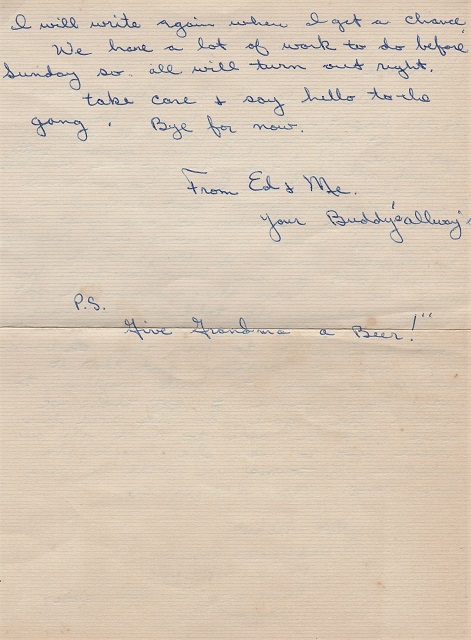 I will write again when I get a chance.
We have a lot of work to do before
Sunday so all will turn out right.
take care & say hello to the
gang. Bye for now.
From Ed & Me.
Your Buddy's allway's
P.S.
Give Grandma a Beer!"